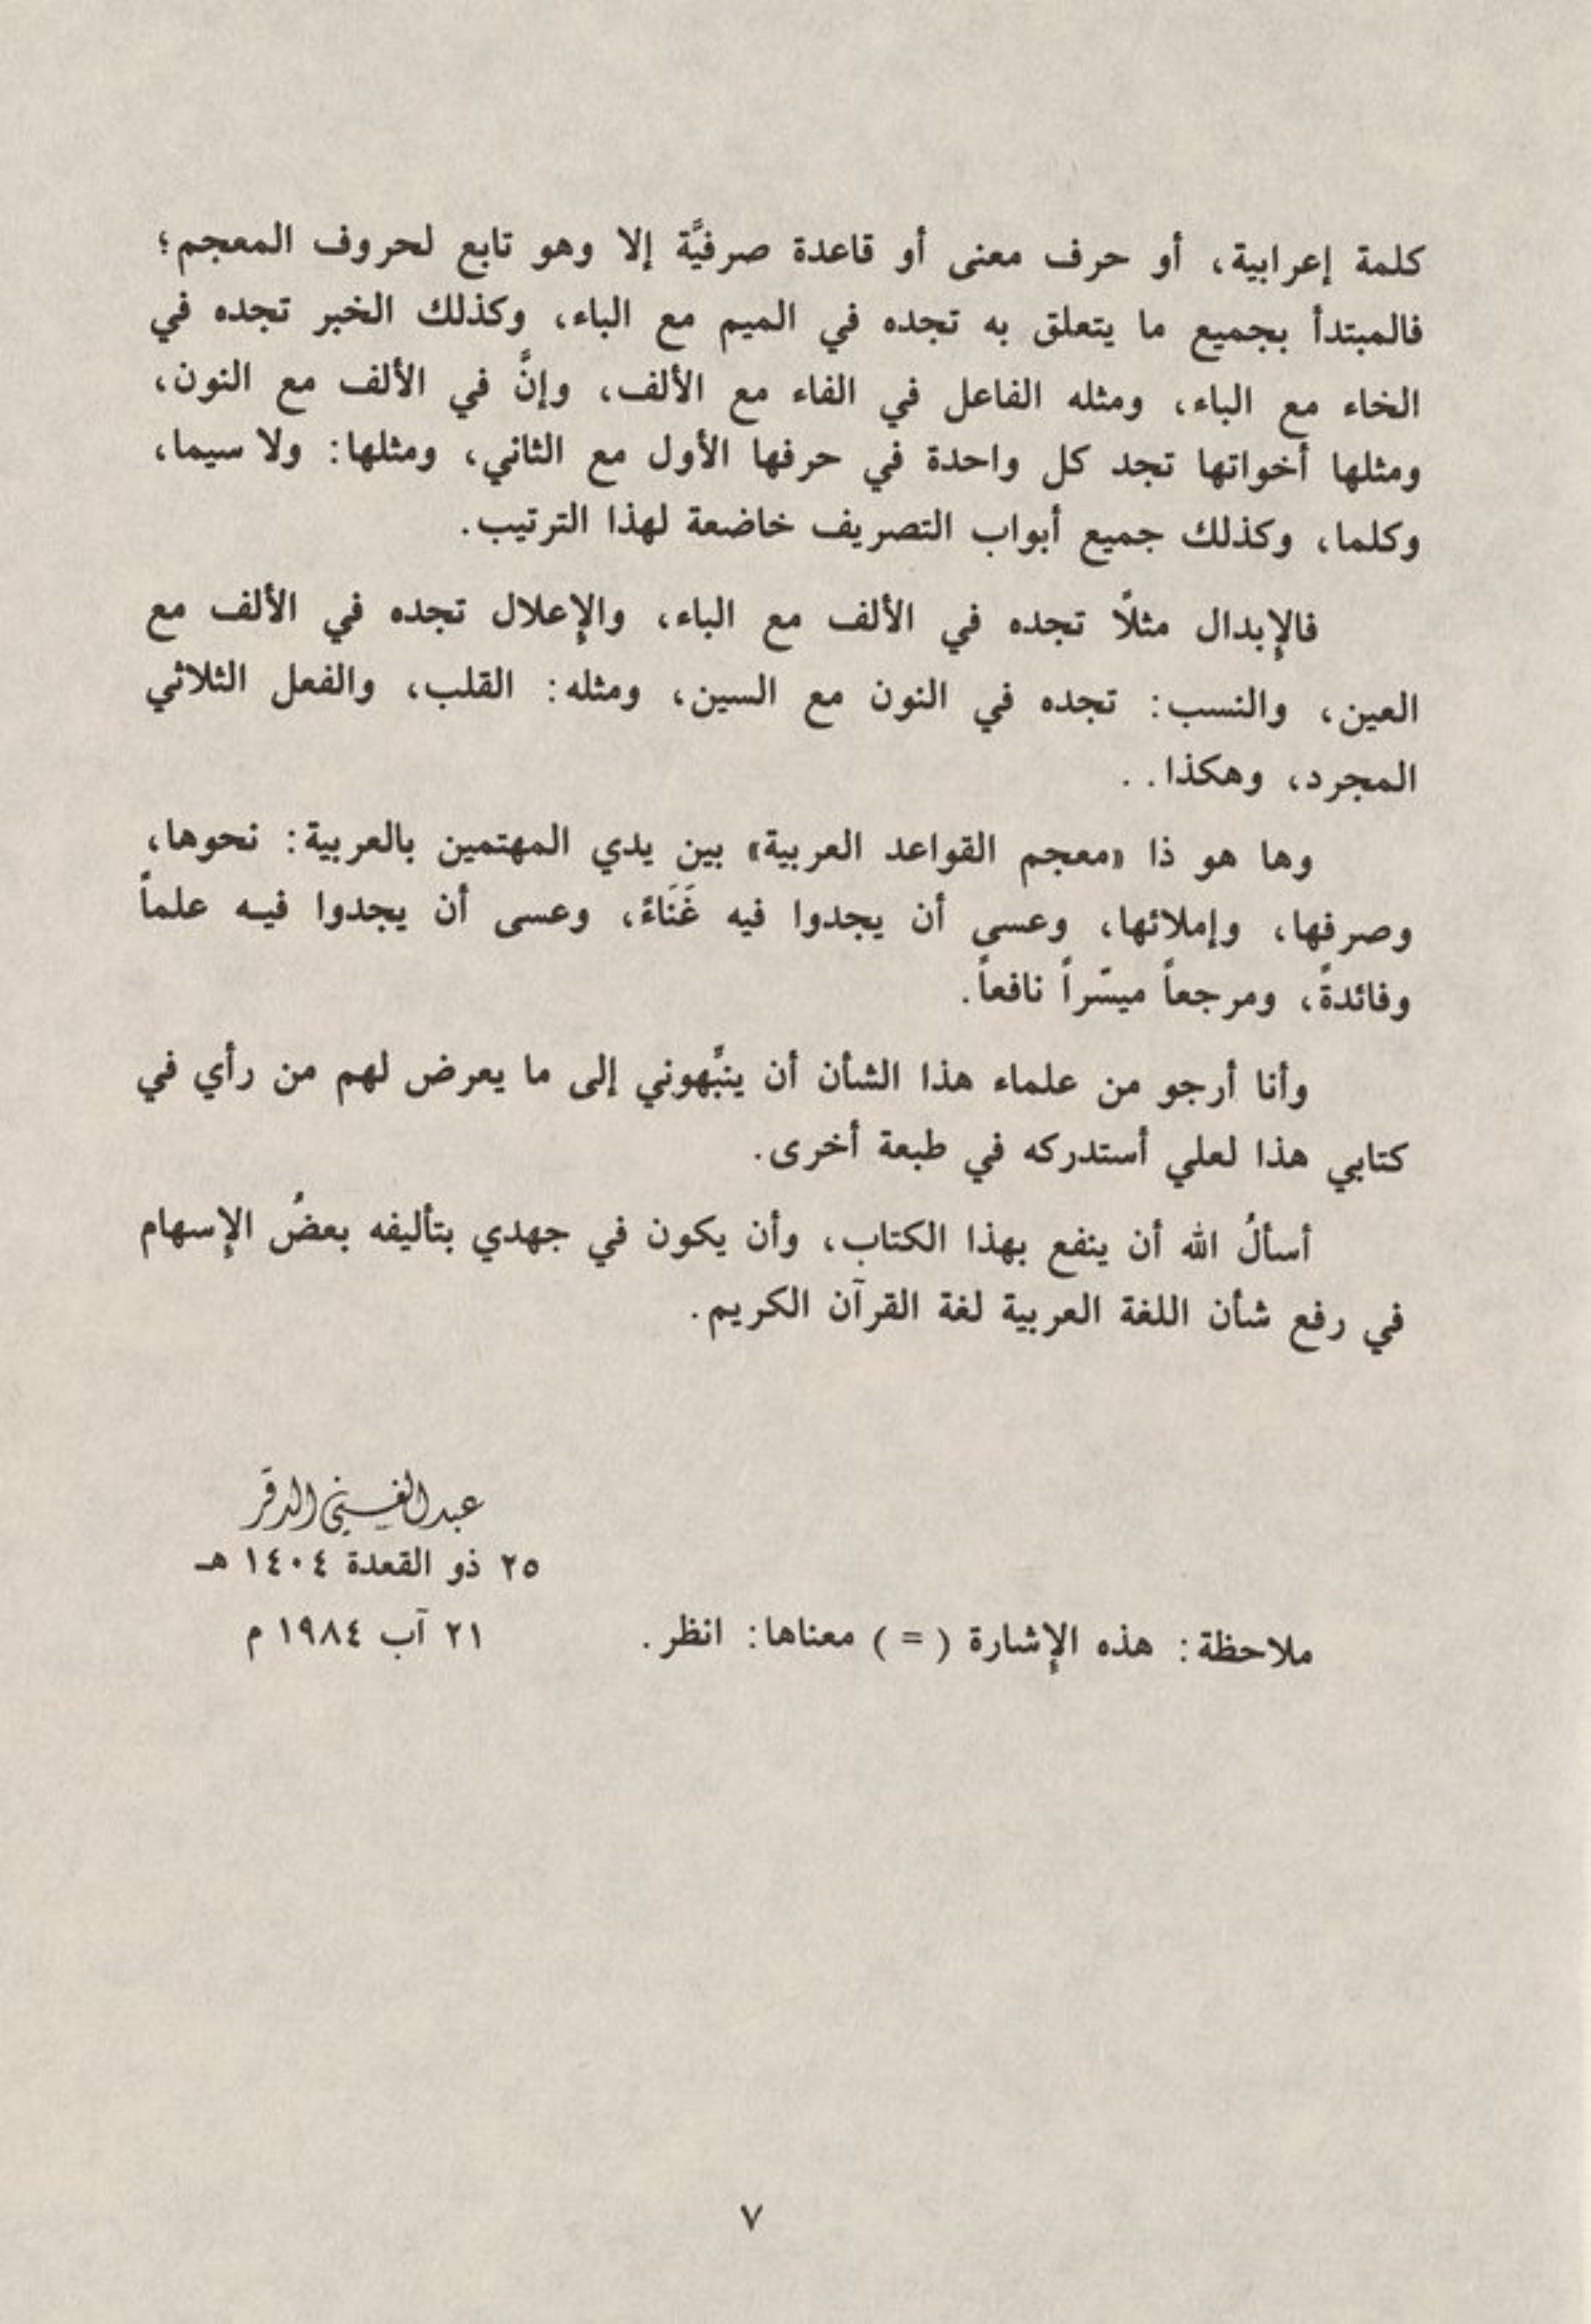 كلمة إعرابية، أو حرف معنى أو قاعدة صرفيَّة إلا وهو تابع لحروف المعجم؛
فالمبتدأ بجميع ما يتعلق به تجده في الميم مع الباء، وكذلك الخبر تجده في
الخاء مع الباء، ومثله الفاعل في الفاء مع الألف، وإنَّ في الألف مع النون،
ومثلها أخواتها تجد كل واحدة في حرفها الأول مع الثاني، ومثلها: ولا سيما،
وكلما، وكذلك جميع أبواب التصريف خاضعة لهذا الترتيب.
فالإبدال مثلًا تجده في الألف مع الباء، والإعلال تجده في الألف مع
العين، والنسب: تجده في النون مع السين، ومثله: القلب، والفعل الثلاثي
المجرد، وهكذا..
وها هو ذا «معجم القواعد العربية» بين يدي المهتمين بالعربية: نحوها،
وصرفها، وإملائها، وعسى أن يجدوا فيه غَنَاءً، وعسى أن يجدوا فيه علماً
وفائدةً، ومرجعاً ميسّراً نافعاً.
وأنا أرجو من علماء هذا الشأن أن ينبِّهوني إلى ما يعرض لهم من رأي في
كتابي هذا لعلي أستدركه في طبعة أخرى.
أسألُ الله أن ينفع بهذا الكتاب، وأن يكون في جهدي بتأليفه بعضُ الإسهام
في رفع شأن اللغة العربية لغة القرآن الكريم.
عبد الغني الدقر
٢٥ ذو القعدة ١٤٠٤ هـ
٢١ آب ١٩٨٤ م
ملاحظة: هذه الإشارة ( = ) معناها: انظر.
٧